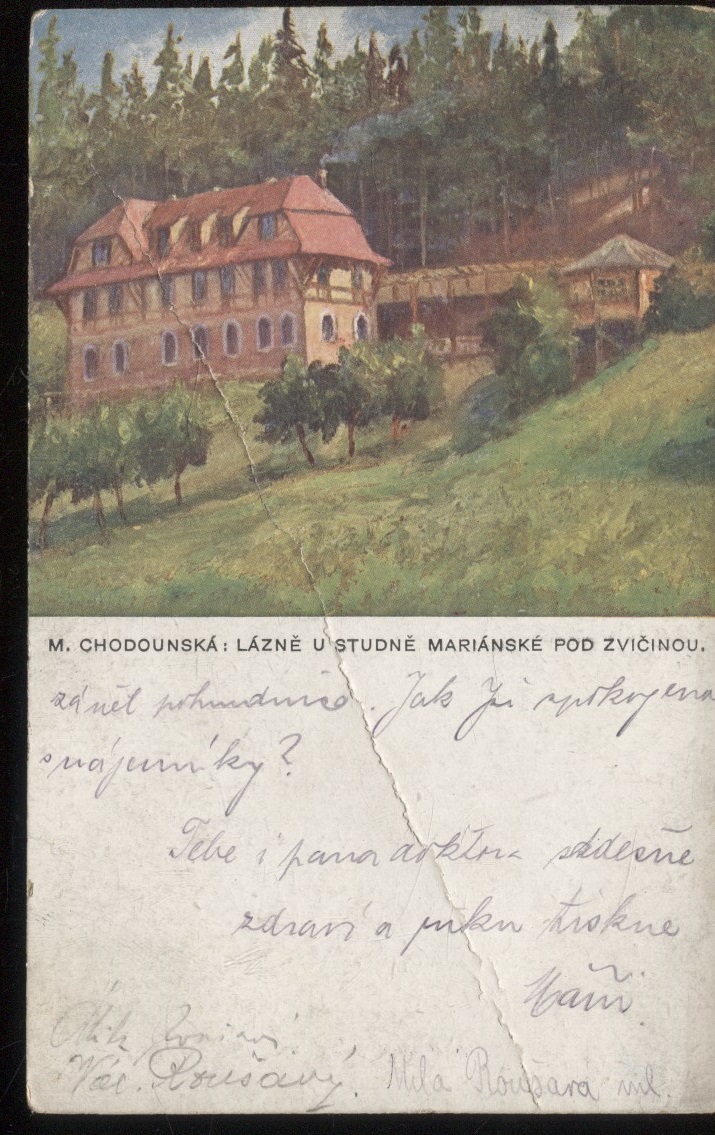 M. CHODOUNSKÁ: LÁZNĚ U STUDNĚ MARIÁNSKÉ POD ZVIČINOU.
zánět pohrudnice. Jak Jsi spokojena
s nájemníky?
Tebe i pana doktora srdečně
zdraví a ruku tiskne
Máňa.
Vác. Roušavý. Míla Roušara ml.